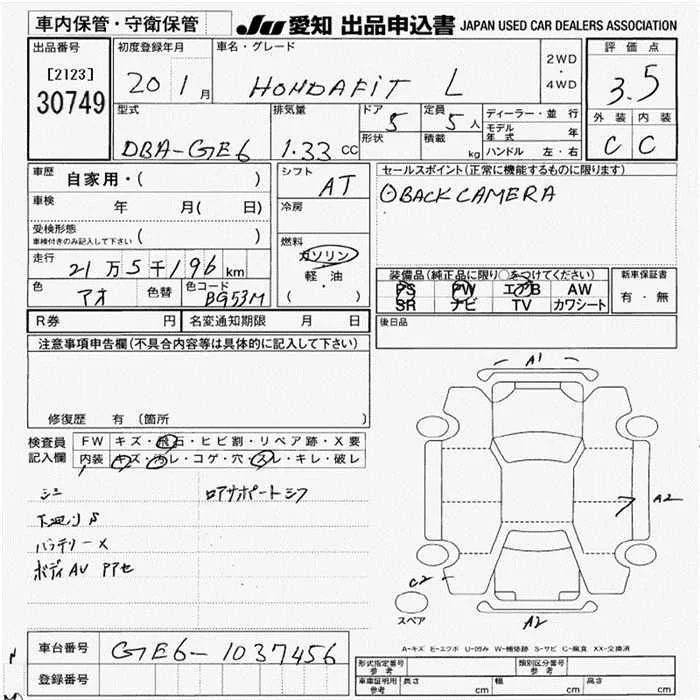 車内保管・守衛保管 JU 愛知 出品申込書 JAPAN USED CAR DEALERS ASSOCIATION
出品番号 初度登録年月 車名・グレード 評価点
[2123] 2WD
30749 20 1月 HONDA FiT L ・ 3.5
4WD
型式 排気量 ドア 定員 ディーラー・並行 外装 内装
5 5人 モデル年式 年
DBA-GE6 1.33CC 形状 積載 kg ハンドル 左・右 C C
車歴 自家用・( ) シフト AT セールスポイント(正常に機能するものに限ります)
車検 年 月( 日) 冷房 BACK CAMERA
受検形態
車検付きのみ記入して下さい ( ) 燃料
走行 21万5千196km ガソリン 装備品(純正品に限り○をつけてください) 新車保証書
軽・油 PS PW エアB AW 有・無
色 アオ 色替 色コード BG53M ( ・ ) SR ナビ TV カワシート
R券 円 名変通知期限 月 日 後日品
注意事項申告欄(不具合内容等は具体的に記入して下さい)
A1
修復歴 有 (箇所 )
検査員 FW キズ・飛石・ヒビ割・リペア跡・X要
記入欄 内装 キズ・汚レ・コゲ・穴・スレ・キレ・破レ
シミ ロアサポートシフ A2
下廻りS
バッテリーX
ボディAU アアセ
C2
スペア A2
A-キズ E-エクボ U-凹み W-補修跡 S-サビ C-腐食 XX-交換済
車台番号 GE6-1037456
形式指定番号 参考 類別区分番号 参考
登録番号 車庫証明用 参考 長さ cm 幅 cm 高さ cm